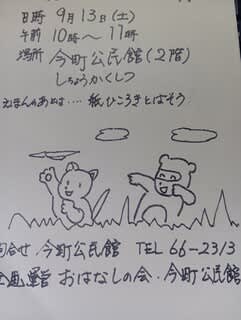 日時 9月13日(土)
午前 10時～11時
場所 今町公民館(2階)
しちょうかくしつ
えほんのあとは‥‥紙ひこうきとばそう
問合せ.今町公民館 TEL 66-2313
企画運営 おはなしの会.今町公民館